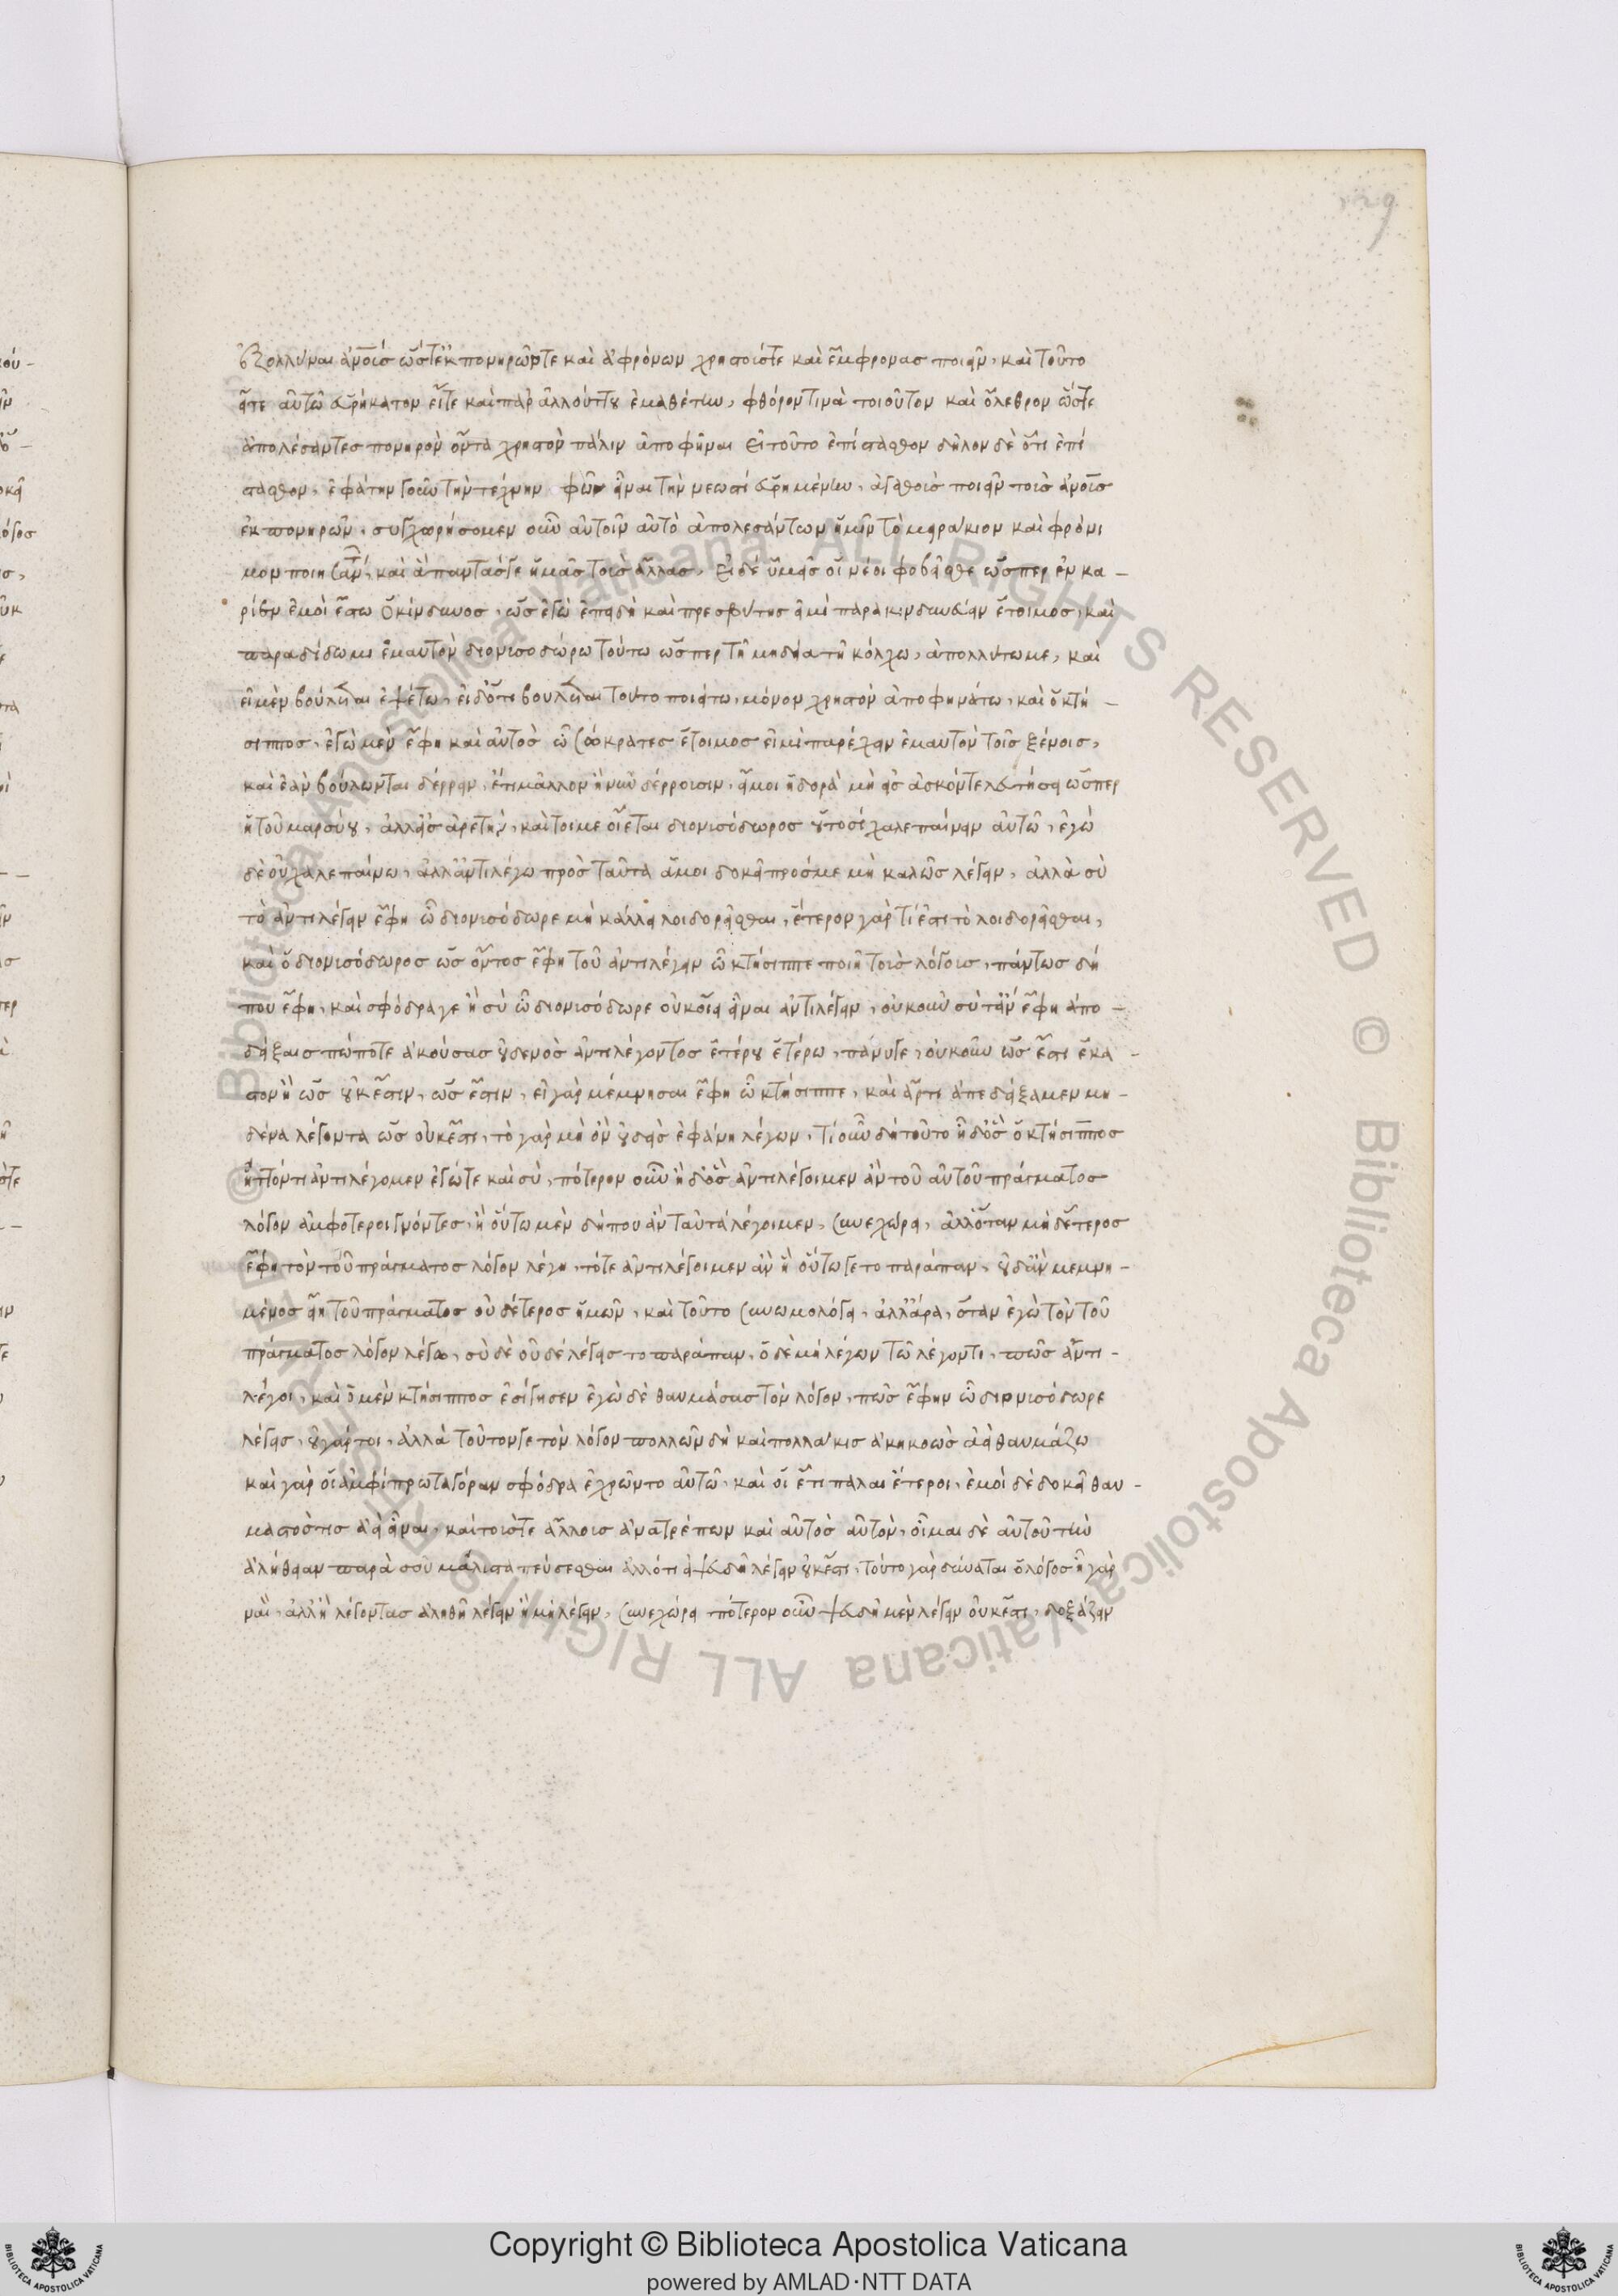 ἐξολλύναι ἀνοῑς ὥστ' ἐκ πονηρῶν τε καὶ ἀφρόνων χρηστούς τε καὶ ἔμφρονας ποιεῖν, καὶ τοῦτο
εἴτε αὐτὼ εὑρήκατον εἴτε καὶ παρ' ἄλλου του ἐμαθέτην, φθόρον τινὰ τοιοῦτον καὶ ὄλεθρον ὥστε
ἀπολέσαντες πονηρὸν ὄντα χρηστὸν πάλιν ἀποφῆναι εἰ τοῦτο ἐπίστασθον δῆλον δὲ ὅτι ἐπί
στασθον, ἐφάτην γοῦν τὴν τέχνην φῶν εἶναι τὴν νεωστὶ εὑρημένην, ἀγαθοὺς ποιεῖν τοὺς ἀνοῑς
ἐκ πονηρῶν, συγχωρήσομεν οὖν αὐτοῖν αὐτὸ ἀπολεσάντων ἡμῖν τὸ μειράκιον καὶ φρόνι
μον ποιησάντ, καὶ ἅπαντάς γε ἡμᾶς τοὺς ἄλλους, εἰ δὲ ὑμεῖς οἱ νέοι φοβεῖσθε ὥσπερ ἐν κα -
ρὶ ἐν ἐμοὶ ἔστω ὁ κίνδυνος, ὡς ἐγὼ ἐπειδὴ καὶ πρεσβύτης εἰμὶ παρακινδυνεύειν ἕτοιμος, καὶ
παραδίδωμι ἐμαυτὸν διονυσοδώρω τούτω ὥσπερ τῆ μηδεία τῆ κόλχω, ἀπολλύτω με, καὶ
εἰ μὲν βούλεται ἑψέτω, εἰ δ' ὅτι βούλεται τοῦτο ποιείτω, μόνον χρηστὸν ἀποφηνάτω, καὶ ὁ κτή -
σιππος, ἐγὼ μὲν ἔφη καὶ αὐτὸς ὦ σώκρατες ἕτοιμος εἰμὶ παρέχειν ἐμαυτὸν τοῖς ξένοις,
καὶ ἐὰν βούλωνται δέρρειν, ἔτι μᾶλλον ἢ νῦν δέρροισιν, εἴ μοι ἡ δορὰ μὴ εἰς ἀσκὸν τελευτήσει ὥσπερ
ἡ τοῦ μαρσύου, ἀλλ' εἰς ἀρετήν, καὶ τοι με οἴεται διονισόδωρος οὑτοσὶ χαλεπαίνειν αὐτῶ, ἐγὼ
δὲ οὐ χαλεπαίνω, ἀλλ' ἀντιλέγω πρὸς ταῦτα ἅ μοι δοκεῖ πρός με μὴ καλῶς λέγειν, ἀλλὰ σὺ
τὸ ἀντιλέγειν ἔφη ὦ διονισόδωρε μὴ κάλλει λοιδορεῖσθαι, ἕτερον γάρ τί ἐστι τὸ λοιδορεῖσθαι,
καὶ ὁ διονισόδωρος ὡς ὄντος ἔφη τοῦ ἀντιλέγειν ὦ κτήσιππε ποιῆ τοὺς λόγους, πάντως δή
που ἔφη, καὶ σφόδρα γε ἢ σὺ ὦ διονισόδωρε οὐκ οἴει εἶναι ἀντιλέγειν, οὐκοῦν σύ τ' ἂν ἔφη ἀπο -
δείξαις πώποτε ἀκούσας οὐδενὸς ἀντιλέγοντος ἑτέρου ἑτέρω, πάνυ γε, οὐκοῦν ὡς ἔστι ἕκα -
στον ἢ ὡς οὐκ ἔστιν, ὡς ἔστιν, εἰ γὰρ μέμνησαι ἔφη ὦ κτήσιππε, καὶ ἄρτι ἀπεδείξαμεν μη -
δένα λέγοντα ὡς οὐκ ἔστι, τὸ γὰρ μὴ ὂν οὐδεὶς ἐφάνη λέγων, τί οὖν δὴ τοῦτο ἦ δ' ὃς ὁ κτήσιππος
ἧττόν τι ἀντιλέγομεν ἐγώ τε καὶ σύ, πότερον οὖν ἦ δ' ὃς ἀντιλέγοιμεν ἂν τοῦ αὐτοῦ πράγματος
λόγον ἀμφότεροι λέγοντες, ἢ οὕτω μὲν δήπου ἂν ταὐτὰ λέγοιμεν, συνεχώρει, ἀλλ' ὅταν μηδέτερος
ἔφη τὸν τοῦ πράγματος λόγον λέγη, τότε ἀντιλέγοιμεν ἂν ἢ οὕτω γε τὸ παράπαν, οὐδ' ἂν μεμνη -
μένος εἴη τοῦ πράγματος οὐδέτερος ἡμῶν, καὶ τοῦτο συνωμολόγει, ἀλλ' ἄρα, ὅταν ἐγὼ τὸν τοῦ
πράγματος λόγον λέγω, σὺ δὲ οὐδὲ λέγεις τὸ παράπαν, ὁ δὲ μὴ λέγων τῶ λέγοντι, πῶς ἀντι -
λέγοι, καὶ ὁ μὲν κτήσιππος ἐσίγησεν ἐγὼ δὲ θαυμάσας τὸν λόγον, πῶς ἔφην ὦ διονισόδωρε
λέγεις, οὐ γάρ τοι, ἀλλὰ τοῦτόν γε τὸν λόγον πολλῶν δὴ καὶ πολλάκις ἀκηκοὼς ἀεὶ θαυμάζω
καὶ γὰρ οἱ ἀμφὶ πρωταγόραν σφόδρα ἐχρῶντο αὐτῶ, καὶ οἱ ἔτι πάλαι ἕτεροι, ἐμοὶ δὲ δοκεῖ θαυ -
μαστός τις ἀεὶ εἶναι, καὶ τούς τε ἄλλους ἀνατρέπων καὶ αὐτὸς αὑτόν, οἶμαι δὲ αὐτοῦ τὴν
ἀλήθειαν παρὰ σοῦ μάλιστα πεύσεσθαι ἄλλό τι ψευδῆ λέγειν οὐκ ἔστι, τοῦτο γὰρ δύναται ὁ λόγος ἦ γάρ
ναί, ἀλλ' ἢ λέγοντας ἀληθῆ λέγειν ἢ μὴ λέγειν, συνεχώρει πότερον οὖν ψευδῆ μὲν λέγειν οὐκ ἔστι, δοξάζειν